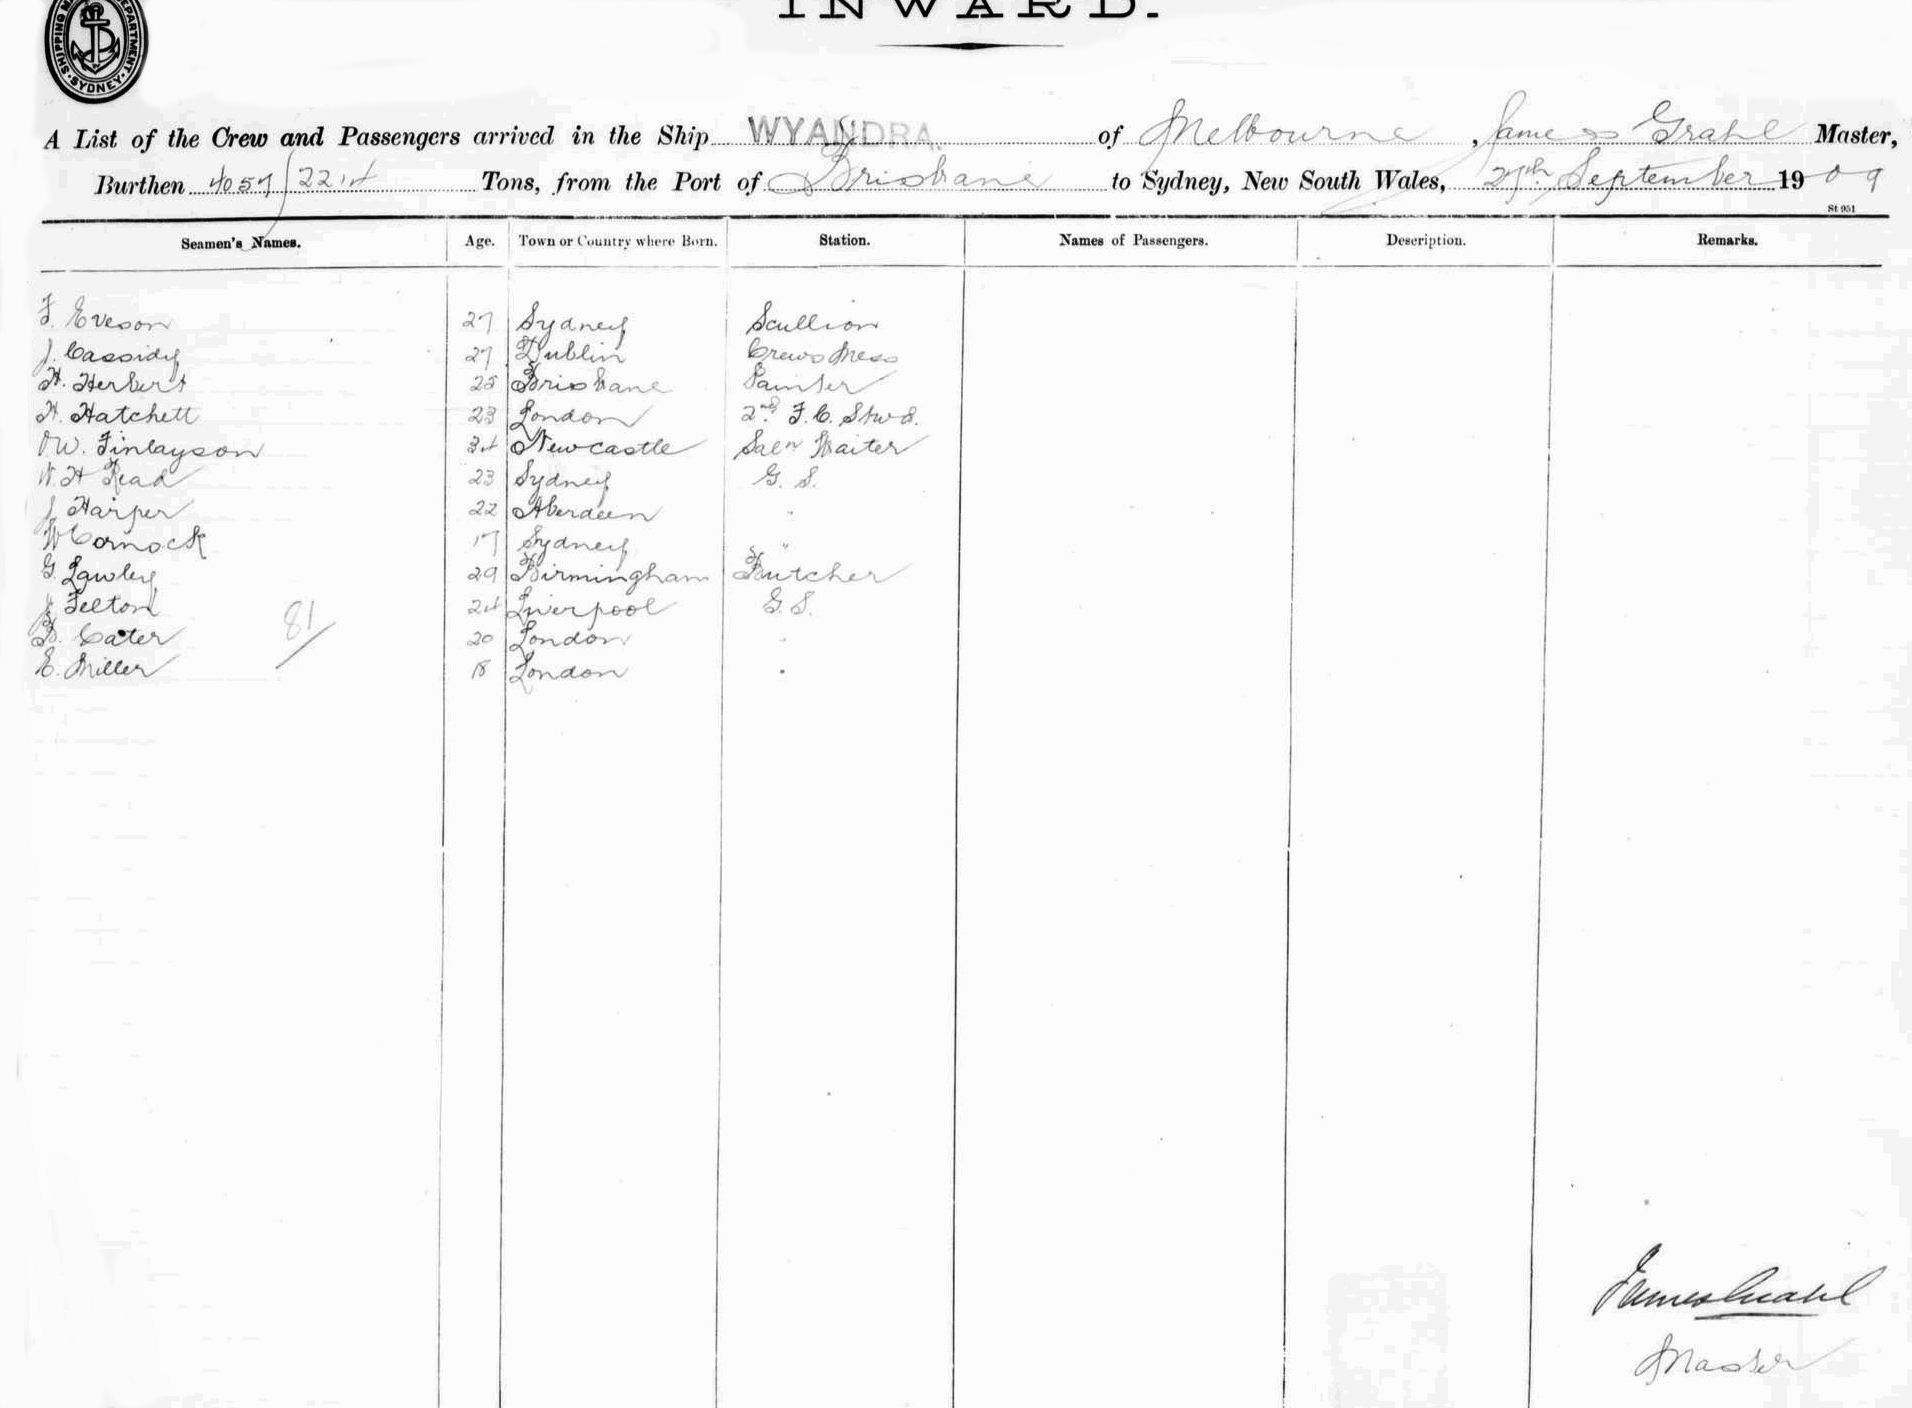 INWARD.
SHIPPING MA DEPARTMENT. SYDNEY.
A List of the Crew and Passengers arrived in the Ship WYANDRA. of Melbourne, James Grahl Master,
Burthen 4057/2214 Tons, from the Port of Brisbane to Sydney, New South Wales, 27th September 1909
St 951
Seamen's Names. Age. Town or Country where Born. Station. Names of Passengers. Description. Remarks.
F. Eveson 27 Sydney Scullion
J. Cassidy 27 Dublin Crews Mess
H. Herbert 25 Brisbane Painter
H. Hatchett 23 London 2nd F. C. Stwd.
W. Finlayson 34 Newcastle Saln Waiter
W. H Read 23 Sydney G. S.
J Harper 22 Aberdeen "
W Cornock 17 Sydney "
G. Lawley 29 Birmingham Butcher
J Felton 24 Liverpool G. S.
B. Cater 20 London "
E. Miller 18 London "
81
James Grahl
Master